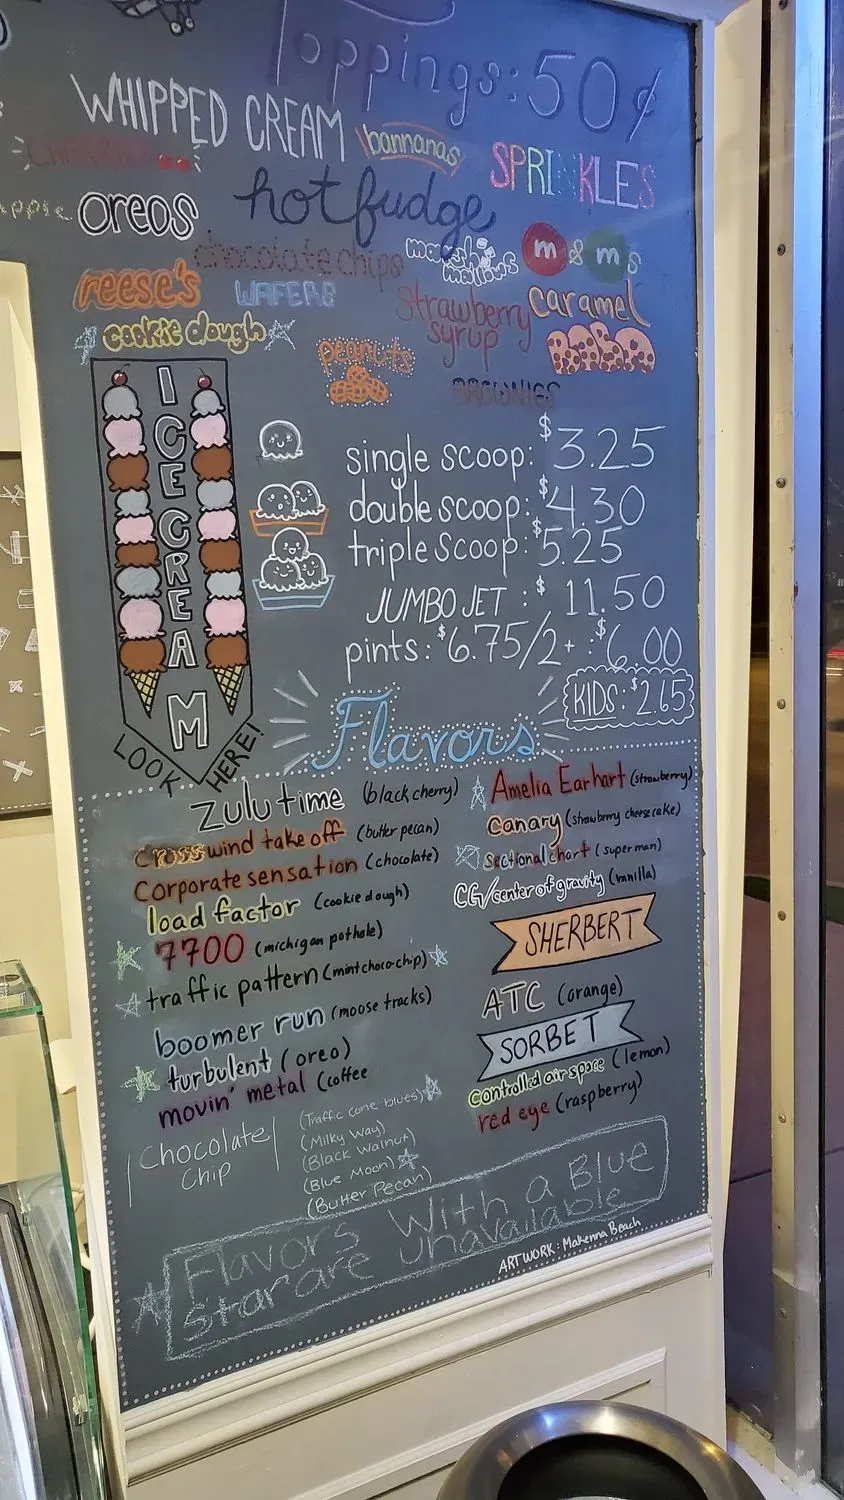 Toppings: 50¢
WHIPPED CREAM
bannanas
SPRINKLES
oreos
hot fudge
chocolate chips
marshmallows
m & m s
reese's
WAFERS
strawberry syrup
caramel
cookie dough
peanuts
BROWNIES
ICE CREAM
LOOK HERE!
single scoop: $3.25
double scoop: $4.30
triple scoop: $5.25
JUMBO JET : $11.50
pints: $6.75/2+ : $6.00
KIDS: $2.65
Flavors
zulu time (black cherry)
crosswind take off (butter pecan)
Corporate sensation (chocolate)
load factor (cookie dough)
7700 (michigan pothole)
traffic pattern (mint choco-chip)
boomer run (moose tracks)
turbulent (oreo)
movin' metal (coffee
Chocolate Chip
(Traffic cone blues)
(Milky Way)
(Black Walnut)
(Blue Moon)
(Butter Pecan)
Amelia Earhart (strawberry)
Canary (strawberry cheesecake)
sectional chart (superman)
CG/center of gravity (vanilla)
SHERBERT
ATC (orange)
SORBET
controlled air space (lemon)
red eye (raspberry)
Flavors With a Blue
Star are unavailable
ARTWORK: Makenna Beach